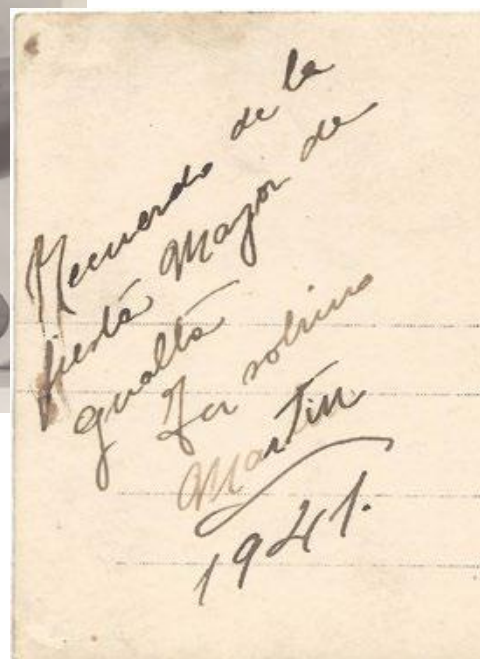 Recuerdo de la
fiesta Mayor de
gualta
Tu sobrino
Martin
1941.